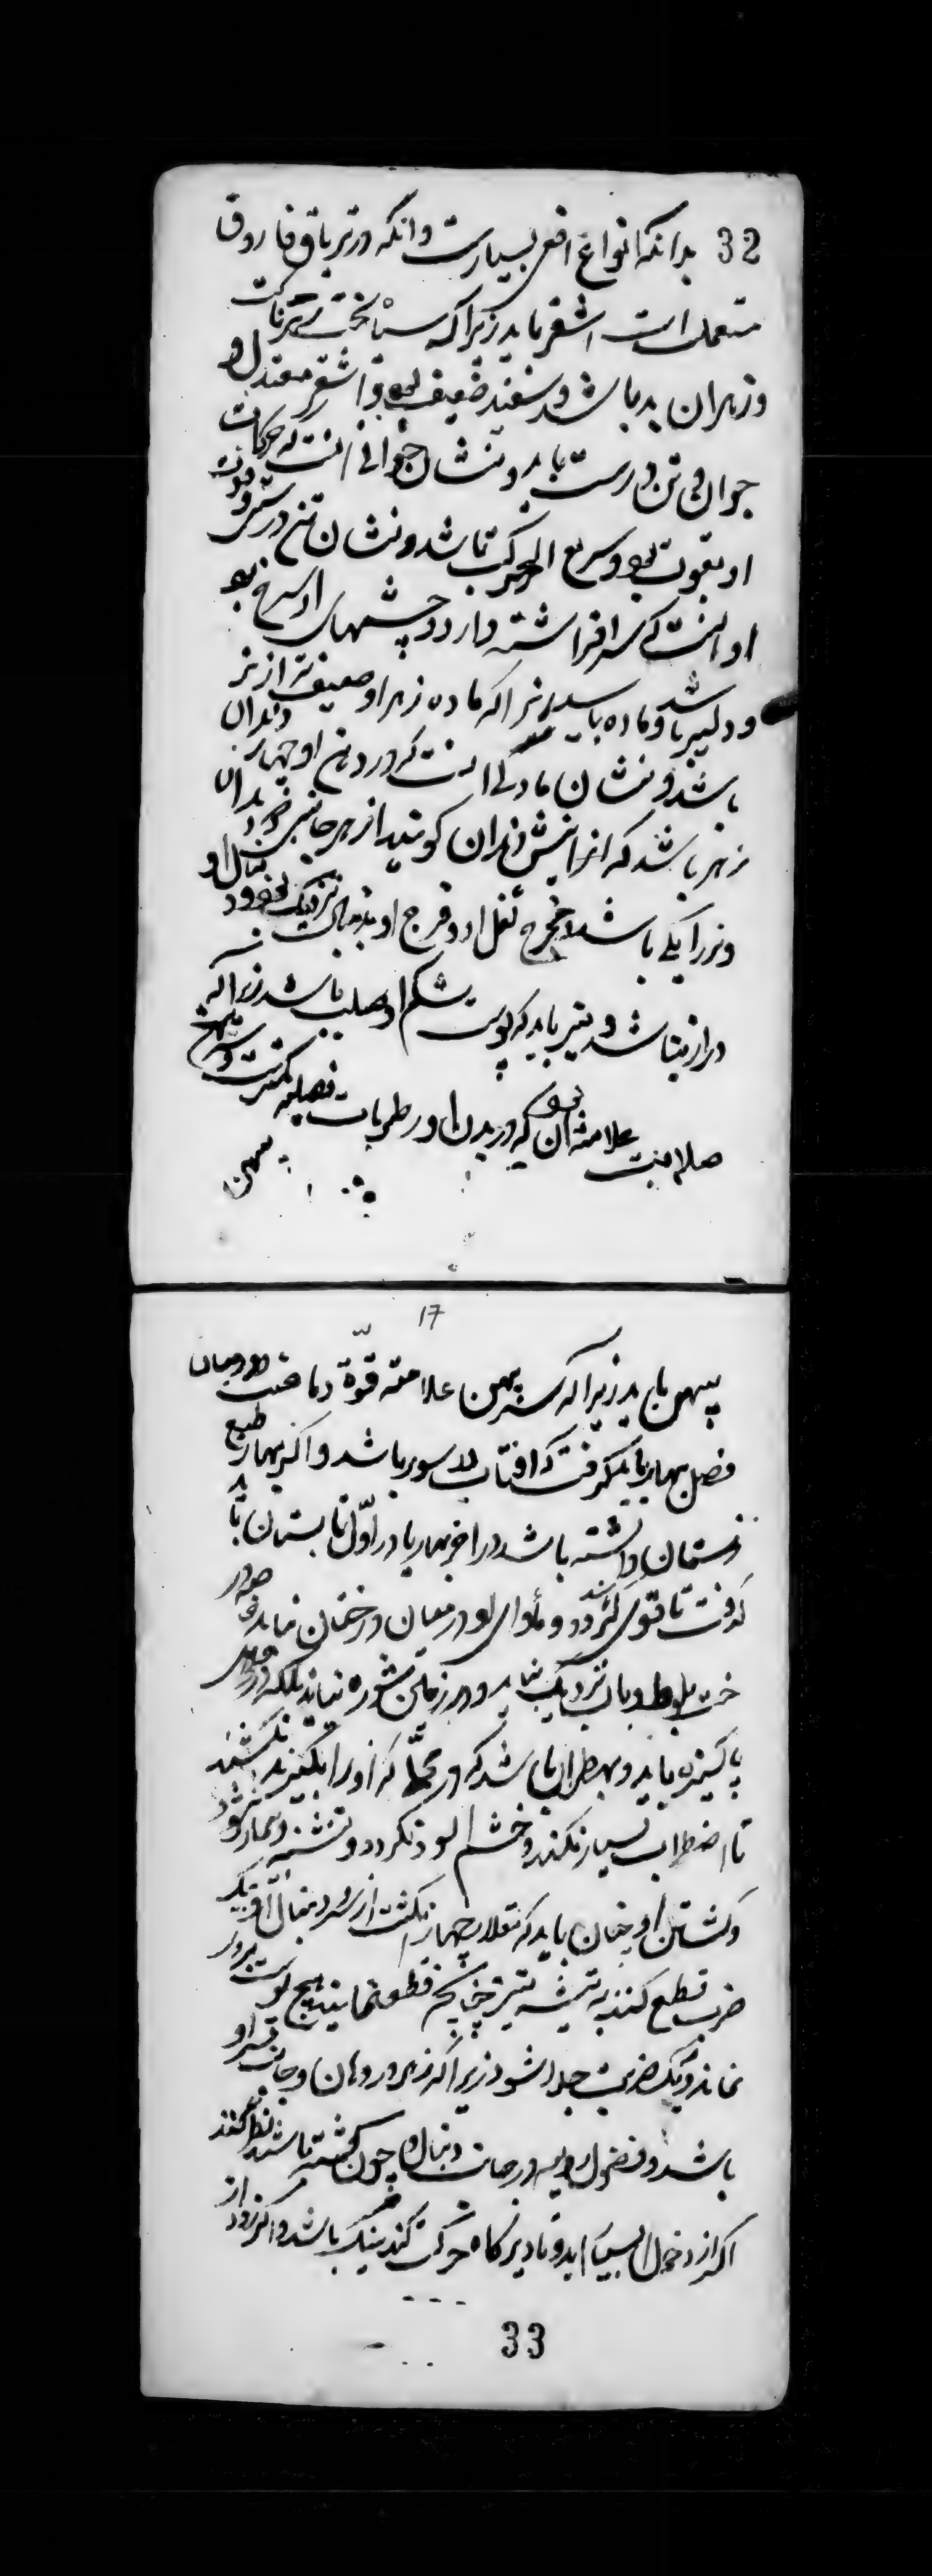 32 بدانکه انواع افعی بسیارست وانکه در تریاق فاروق
مستعملست اشقر باید زیرا که سیاه سخت زهرناکست
و زهر ان بد باشد و سفید ضعیف بود و اشقر معتدل و
جوان و تن درست باید و نشان جوانی انست که حرکات
او بقوت بود و سریع الحرکت باشد و نشان تن درستی و قوت
او انست که سر افراشته دارد و چشمهای او سرخ بود
و دلیر باشد و ماده باید زیرا که ماده زهر او ضعیف تر از نر
باشد و نشان مادگی انست که در دهن او چهار دندان
زهر باشد که انرا نیش دندان کویند از هر جانبی دو دندان
و نر را یکی باشد و مخرج ثفل او و فرج او بدنبال نزدیک بود و دنبال او
دراز نباشد و نیز باید که پوست شکم او صلب باشد زیرا که
صلابت علامت ان بود که در بدن او رطوبات فضلیه کمترست و سر پهن
پهن
17
پهن باید زیرا که سر پهن علامت قوة دماغست و در میان
فصل بهار باید گرفت که افتاب در ثور باشد و اگر بهار طبع
زمستان داشته باشد در اخر بهار یا در اوّل تابستان باید
گرفت تا قوی گردد و مأوای او در میان درختان نباید خاصه در
خت بلوط و بآب نزدیک نباید و در زمین شوره نباید بلکه در زمین
پاکیزه باید و بهتر ان باشد که در محلّی که او را بگیرند بکشند
تا اضطراب بسیار نکند و خشم الود نگردد و تشنه و بیمار نشود
و کشتن او چنان باید که مقدار چهار انگشت از سر و دنبال او بیک
ضرب قطع کنند به تیشه تیز چنانکه قطع نمایند هیچ پوست بر او
نماند و بیک ضربت جدا شود زیرا که زهر در دهان و جانب سر او
باشد و فضول ردیه در جانب دنبال و چون کشته باشد نظر کنند
اگر از و خون بسیار اید و تا دیر گاه حرکت کند نیک باشد و اگر زود از
33